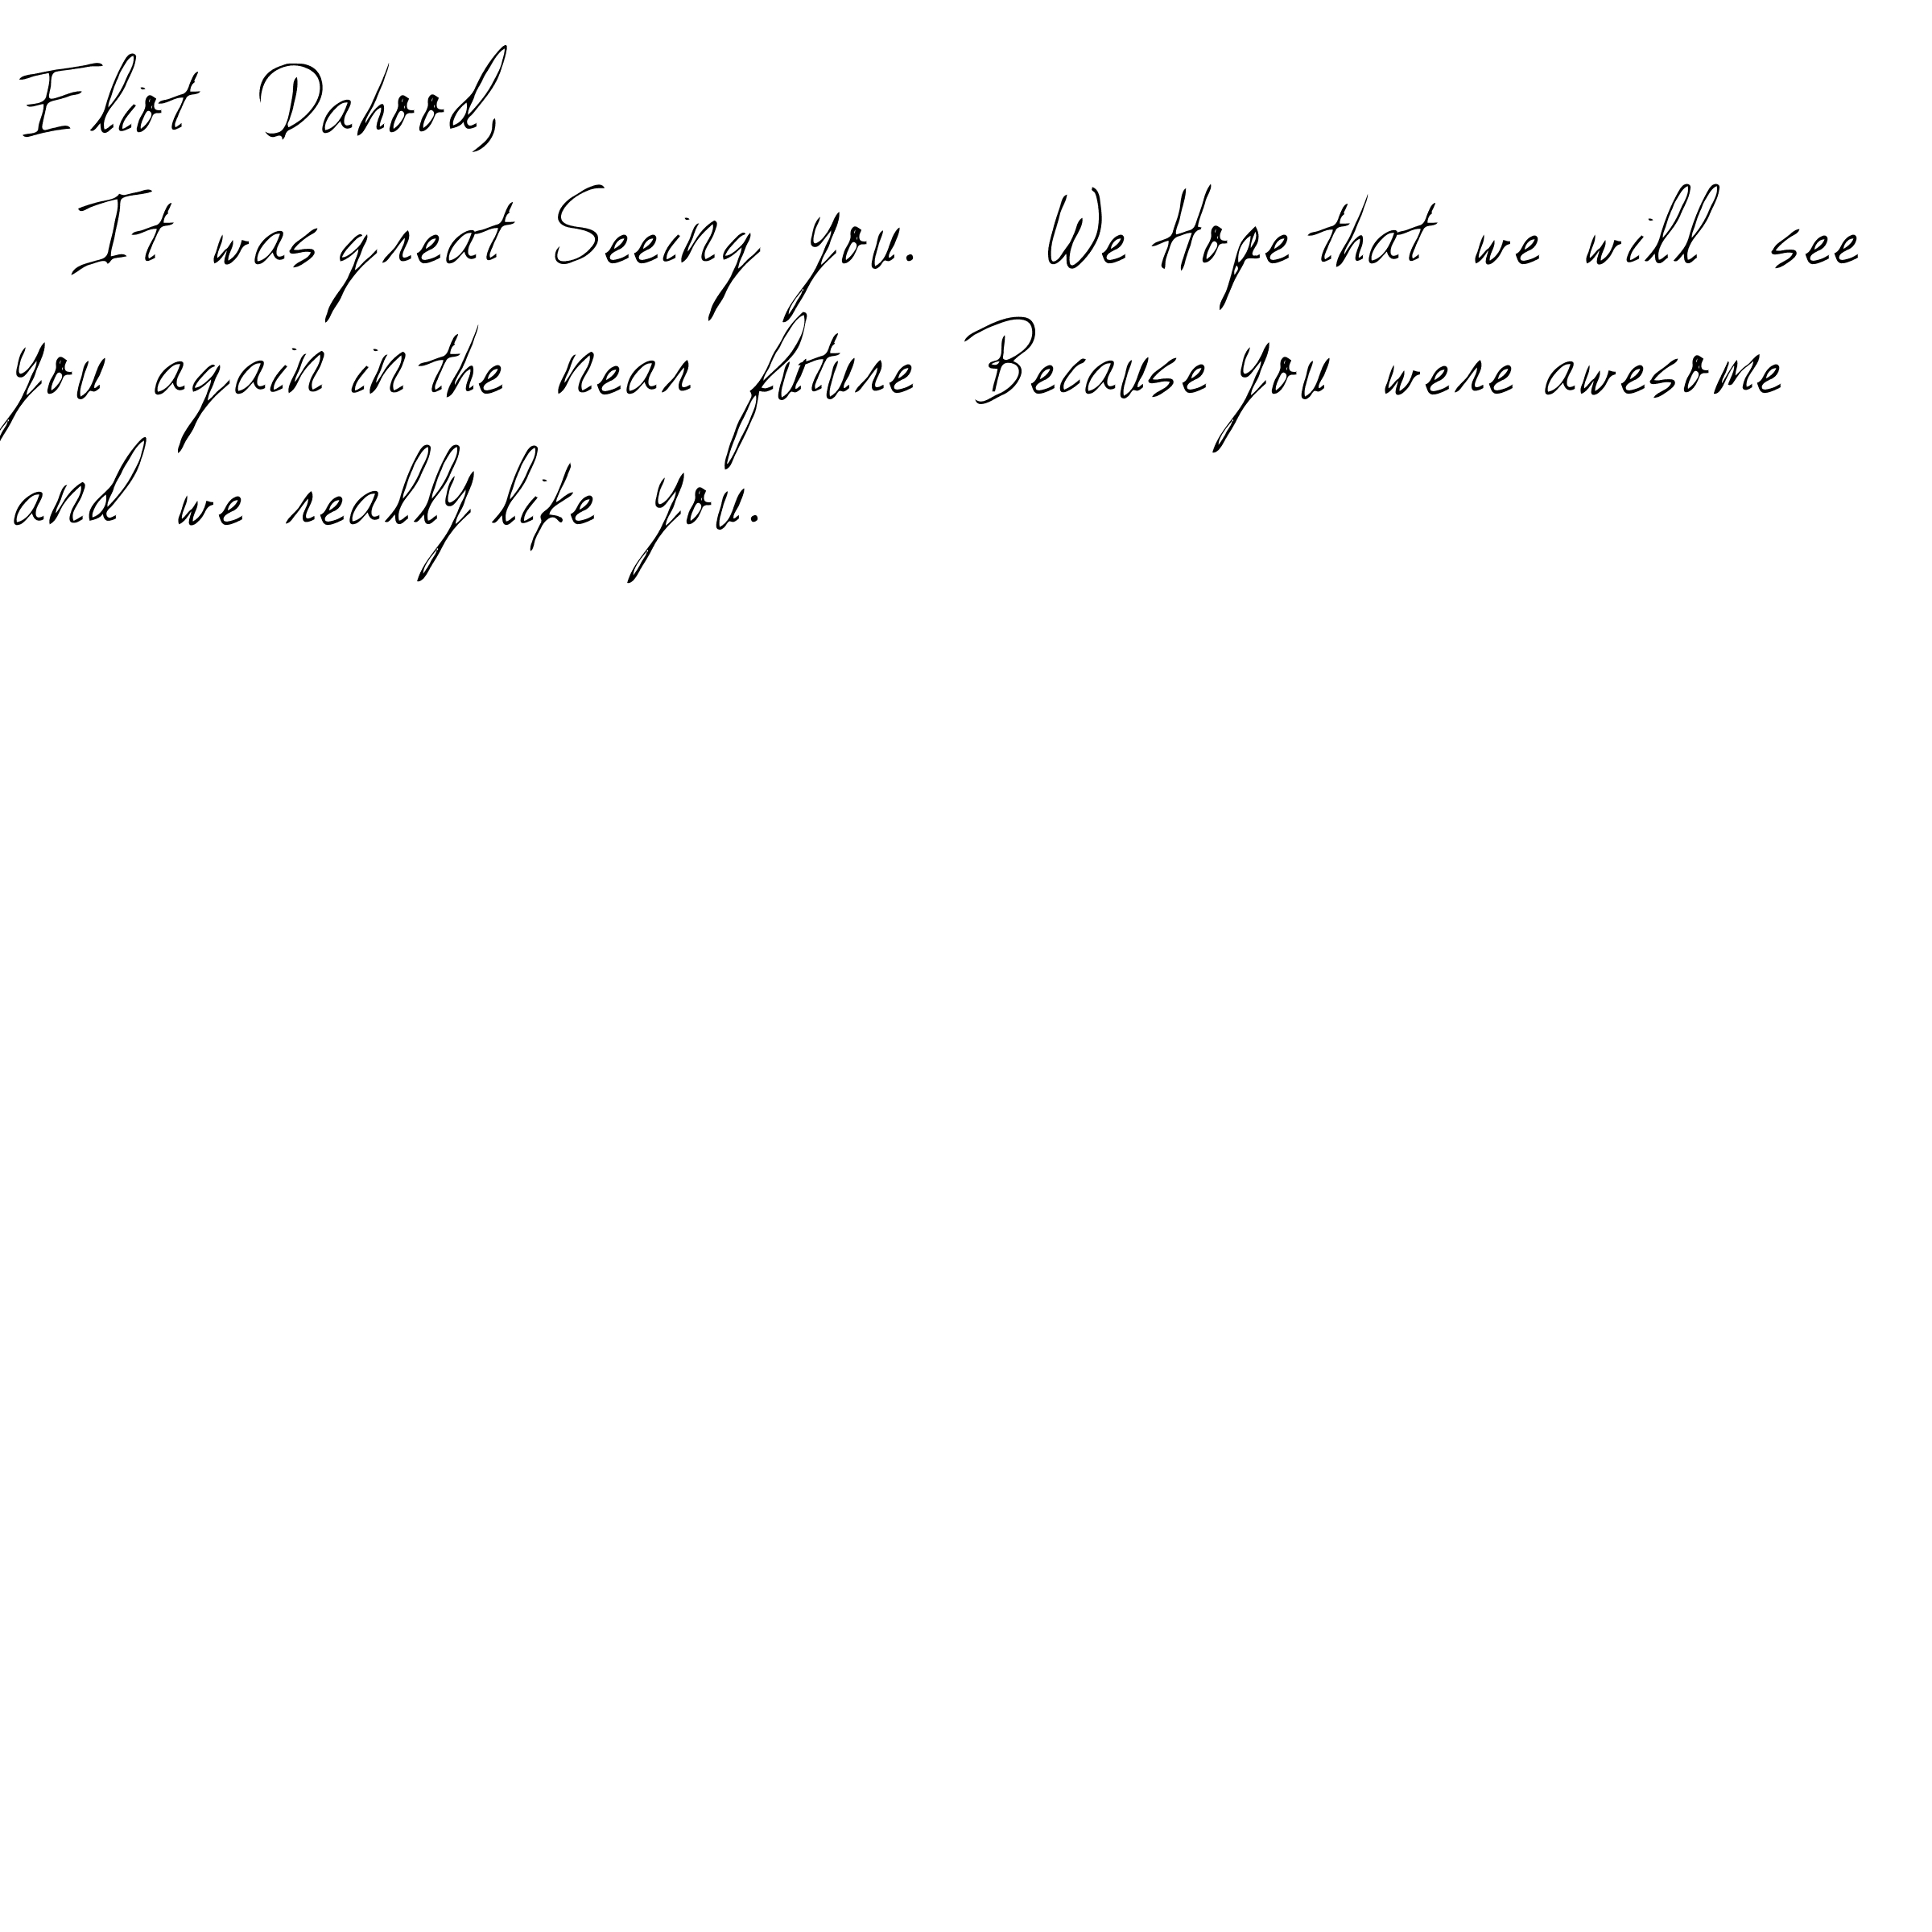 Eliot Dahood,
It was great Seeing you. We Hope that we will see
you again in the near future Because you were awesome
and we really like you.